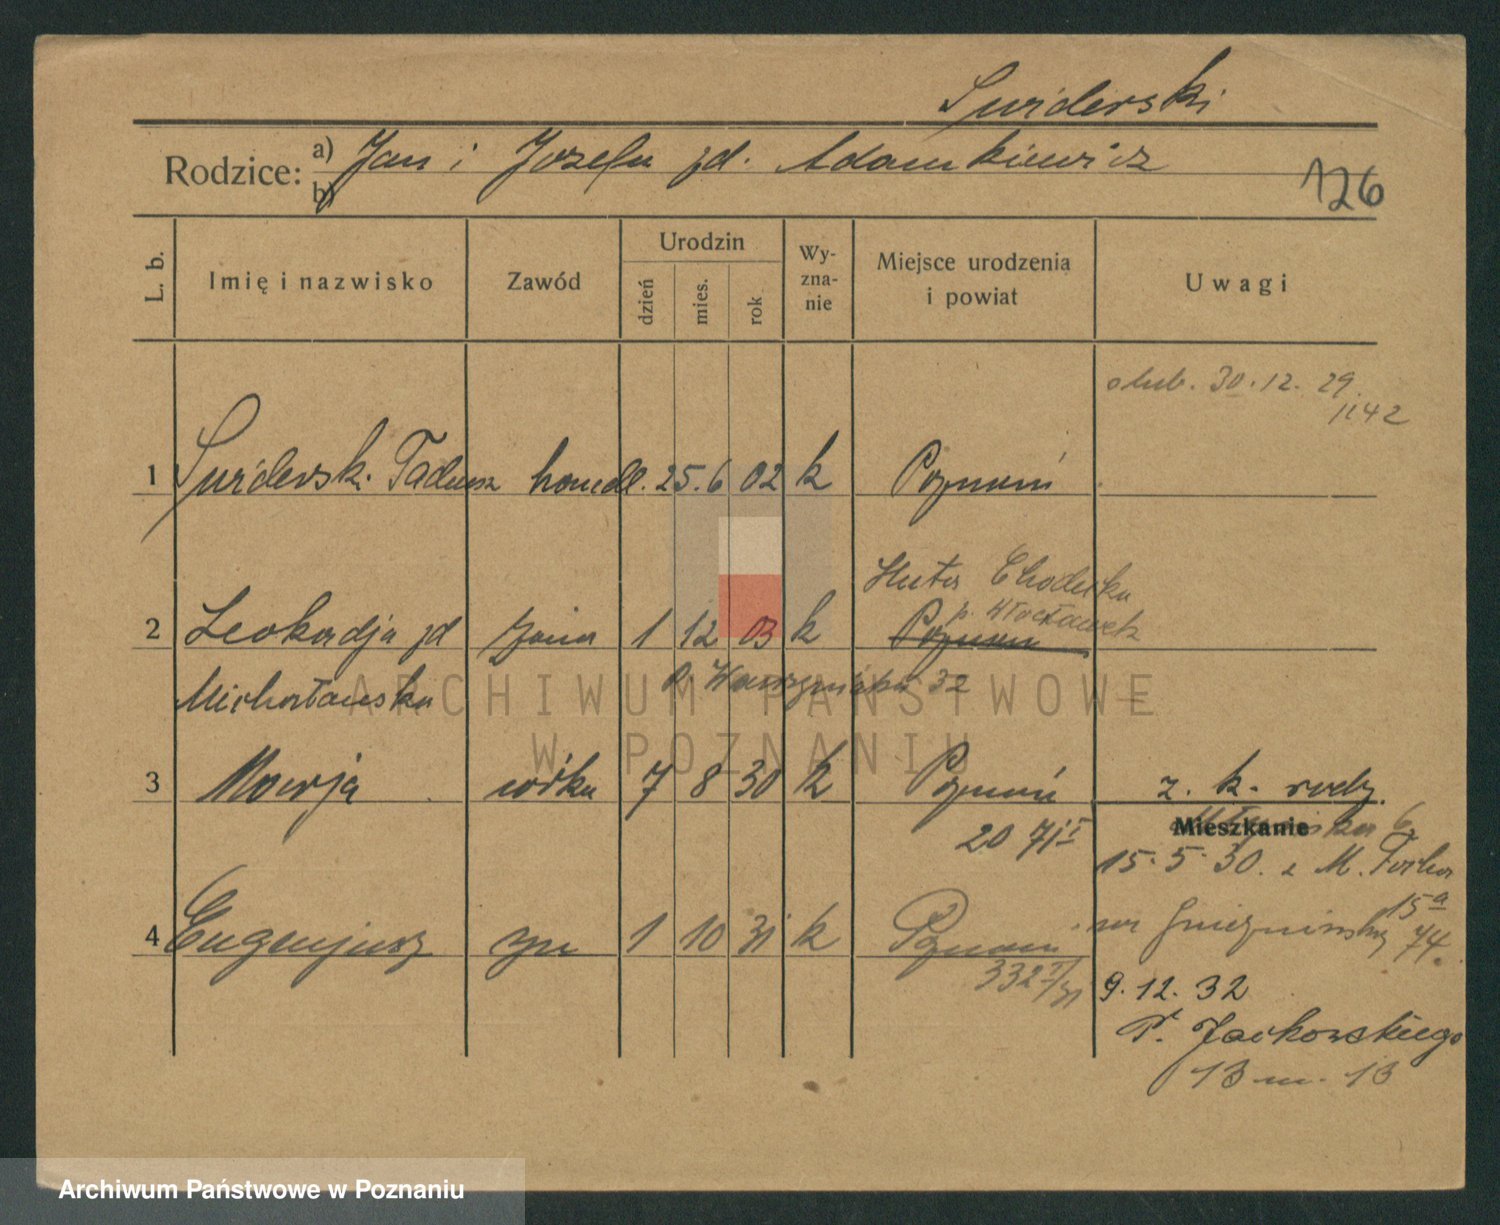 Świderski
Rodzice: a) Jan i Józefa zd. Adamkiewicz
b)
126
L. b. Imię i nazwisko Zawód Urodzin dzień mies. rok Wy-zna-nie Miejsce urodzenia i powiat Uwagi
ślub. 30.12.29
1142
1 Świderski Tadeusz handl. 25. 6 02 k Poznań
Huta Chodecka
p. Włocławek
2 Leokadja zd żona 1 12 03 k Poznań
Michałowska 32
3 Marja córka 7 8 30 k Poznań z. k. rodz.
20 71 I
Mieszkanie 6
15.5.30. z M.
15a
4 Eugenjusz syn 1 10 31 k Poznań na Gnieźnieńską 74.
332 31
9.12.32
P. Jackowskiego
13 m. 13
ARCHIWUM PAŃSTWOWE
W POZNANIU
Archiwum Państwowe w Poznaniu